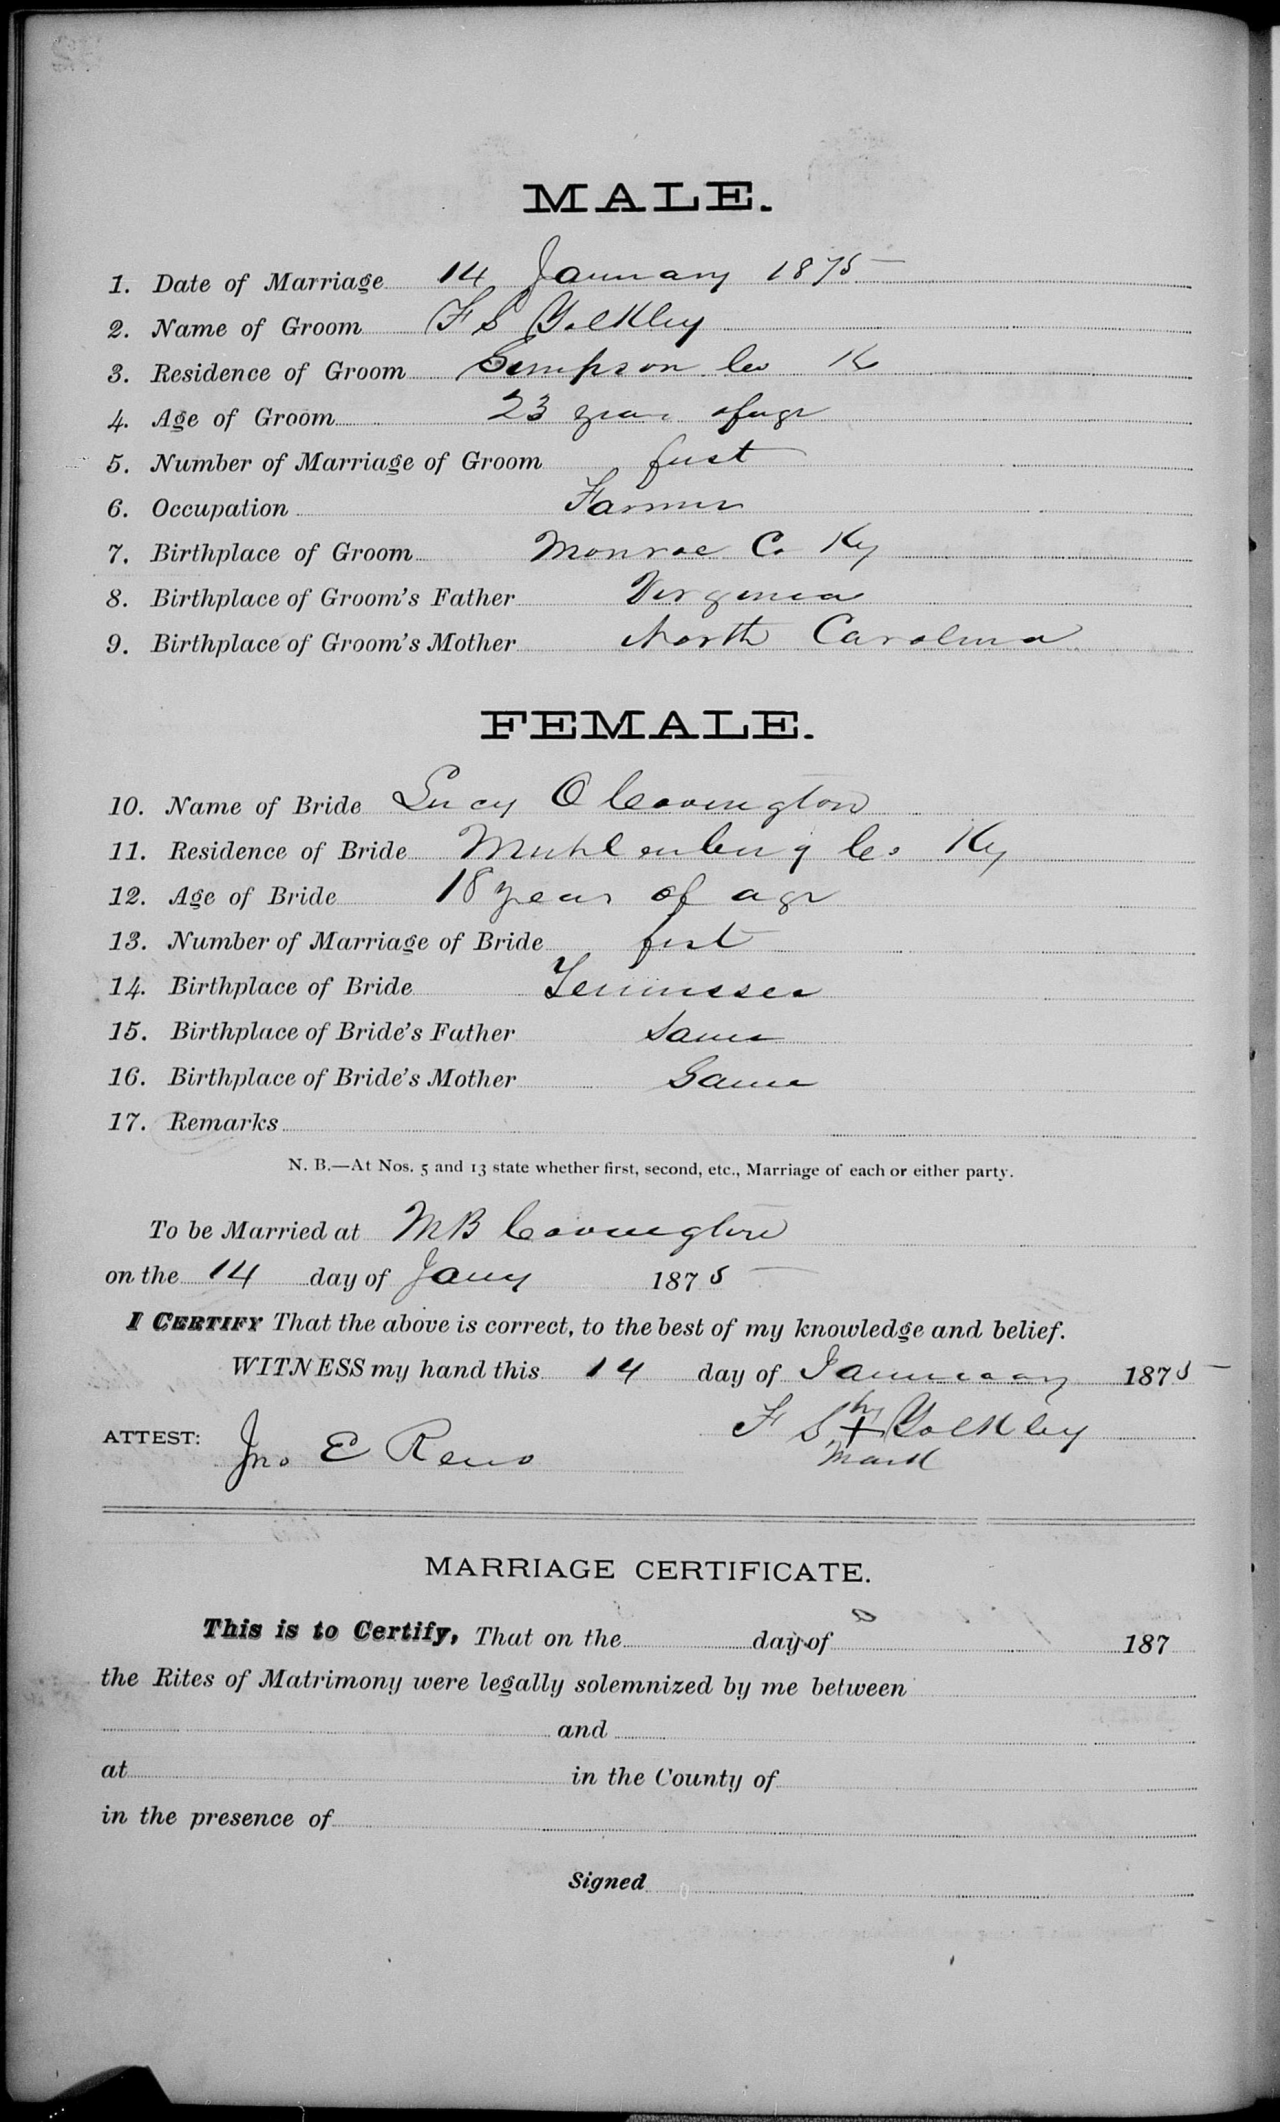 MALE.
1. Date of Marriage 14 January 1875
2. Name of Groom F S Yolkley
3. Residence of Groom Simpson Co Ky
4. Age of Groom 23 years of age
5. Number of Marriage of Groom first
6. Occupation Farmer
7. Birthplace of Groom Monroe Co Ky
8. Birthplace of Groom's Father Virginia
9. Birthplace of Groom's Mother North Carolina
FEMALE.
10. Name of Bride Lucy O Covington
11. Residence of Bride Muhlenburg Co Ky
12. Age of Bride 18 years of age
13. Number of Marriage of Bride first
14. Birthplace of Bride Tennessee
15. Birthplace of Bride's Father Same
16. Birthplace of Bride's Mother Same
17. Remarks
N. B.—At Nos. 5 and 13 state whether first, second, etc., Marriage of each or either party.
To be Married at M B Covington
on the 14 day of Jany 1875
I CERTIFY That the above is correct, to the best of my knowledge and belief.
WITNESS my hand this 14 day of January 1875
F S his x Yolkley
mark
ATTEST: Jno E Reno
MARRIAGE CERTIFICATE.
This is to Certify, That on the day of 187
the Rites of Matrimony were legally solemnized by me between
and
at in the County of
in the presence of
Signed